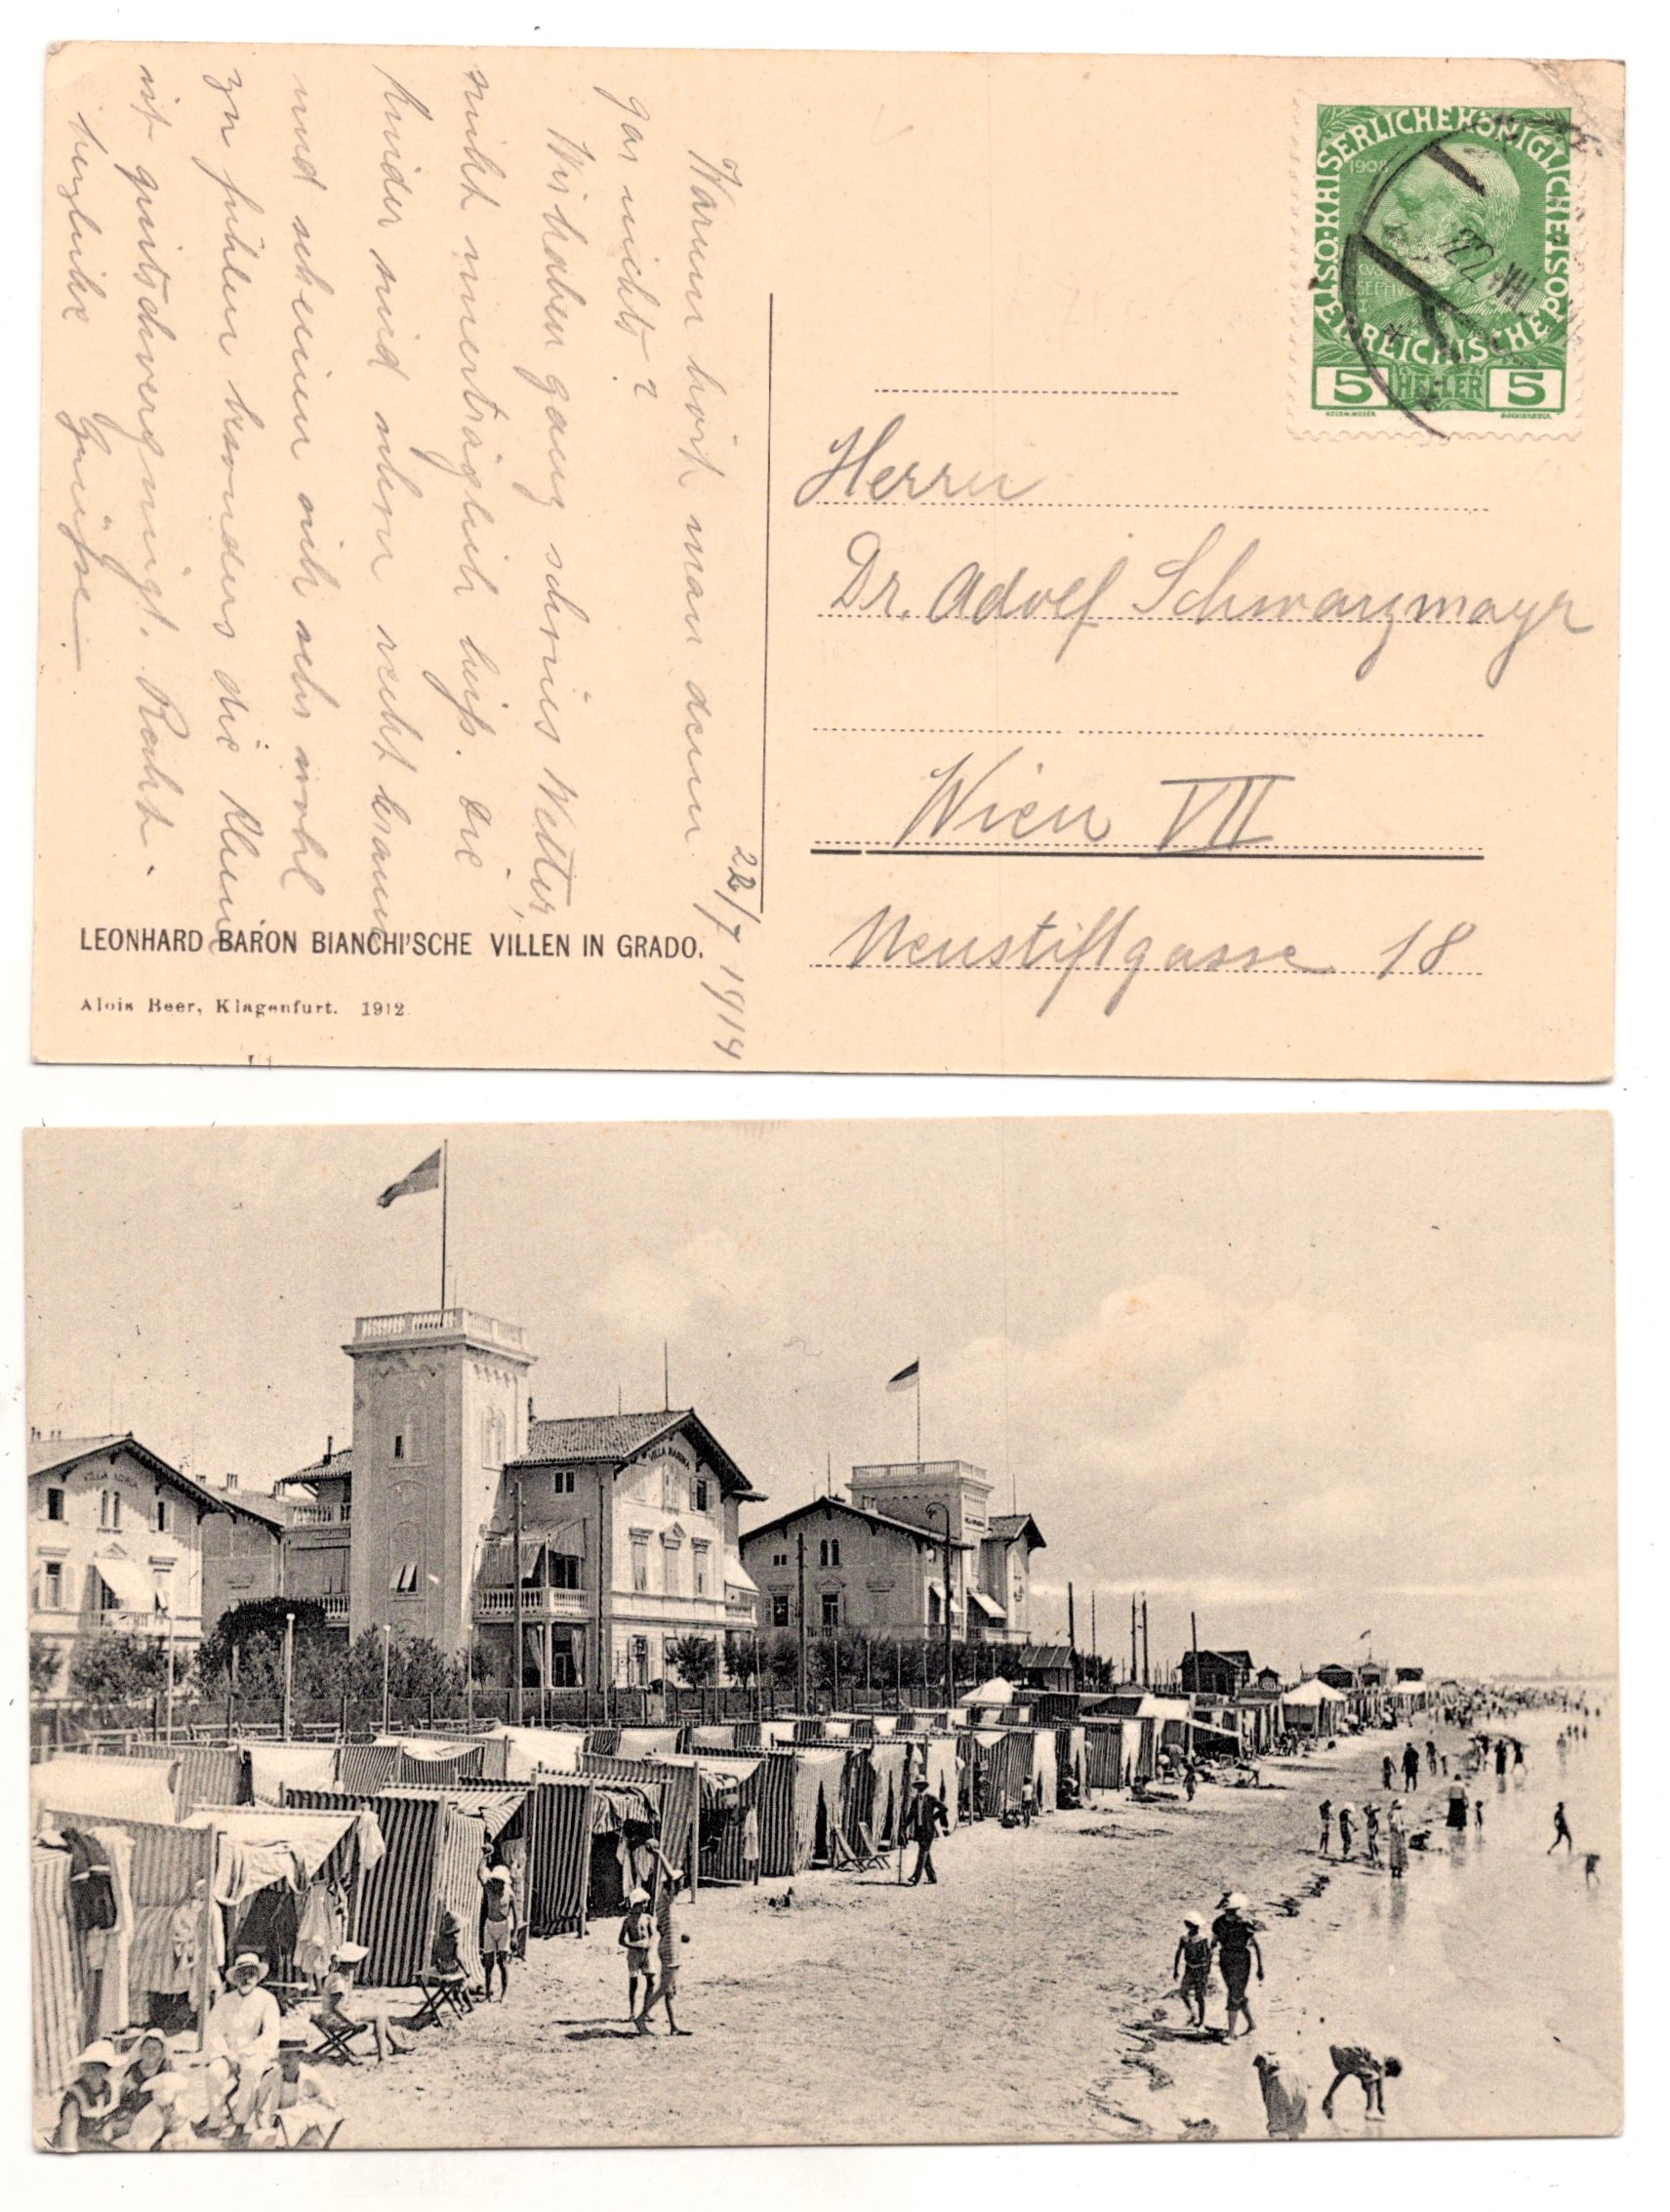 22/7 1914
Warum hört man denn
gar nichts?
Wir haben ganz schönes Wetter,
nicht unerträglich heiß. Die
Kinder sind schon recht braun
und scheinen sich sehr wohl
zu fühlen besonders die Kleine
ist quietschvergnügt. Recht
herzliche Grüße.
LEONHARD BARON BIANCHI'SCHE VILLEN IN GRADO.
Alois Beer, Klagenfurt. 1912
KAISERLICHE KÖNIGLICHE ÖSTERREICHISCHE POST
1908
5 HELLER 5
22 VII
Herrn
Dr. Adolf Schwarzmayr
Wien VII
Neustiftgasse 18
VILLA ADRIA